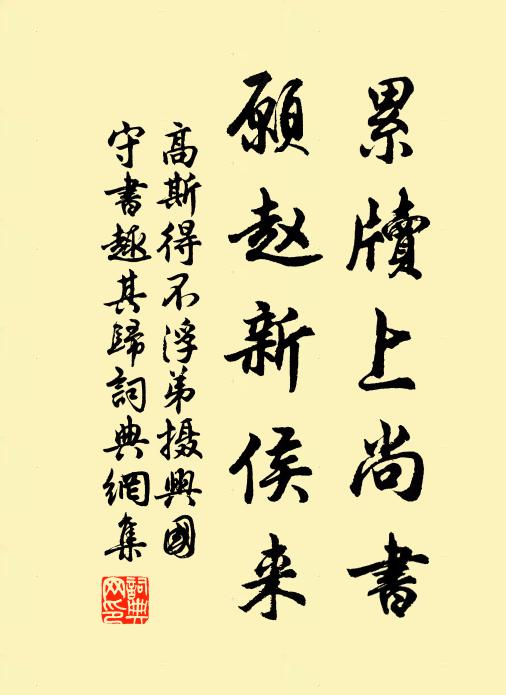 累牍上尚書
願赵新侯来
高斯得不浮弟摄興國
守書趣其歸詞典網集
詞典